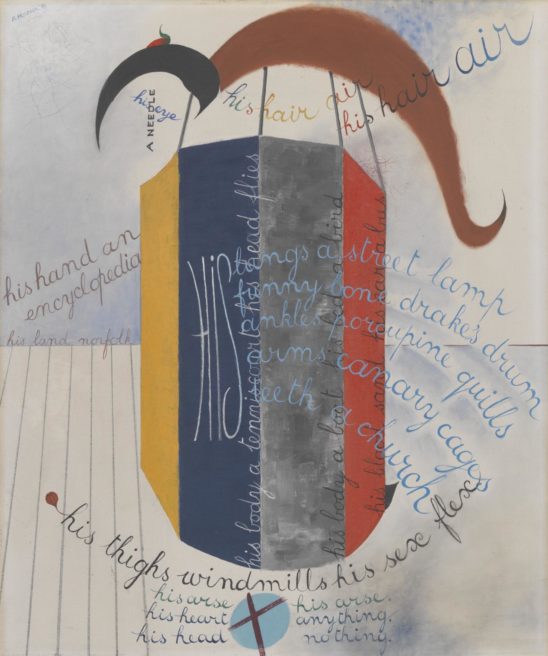 his eye
A NEEDLE
his hair air
his hair air
his hand an
encyclopedia
his land norfolk
HIS
lungs a street lamp
funny bone drake's drum
ankles porcupine quills
arms canary cages
teeth a church
his body a tennis court his head flies
his body a boot his head a bird
his blood sad his
his thighs windmills his sex flex
his arse his arse.
his heart anything.
his head nothing.